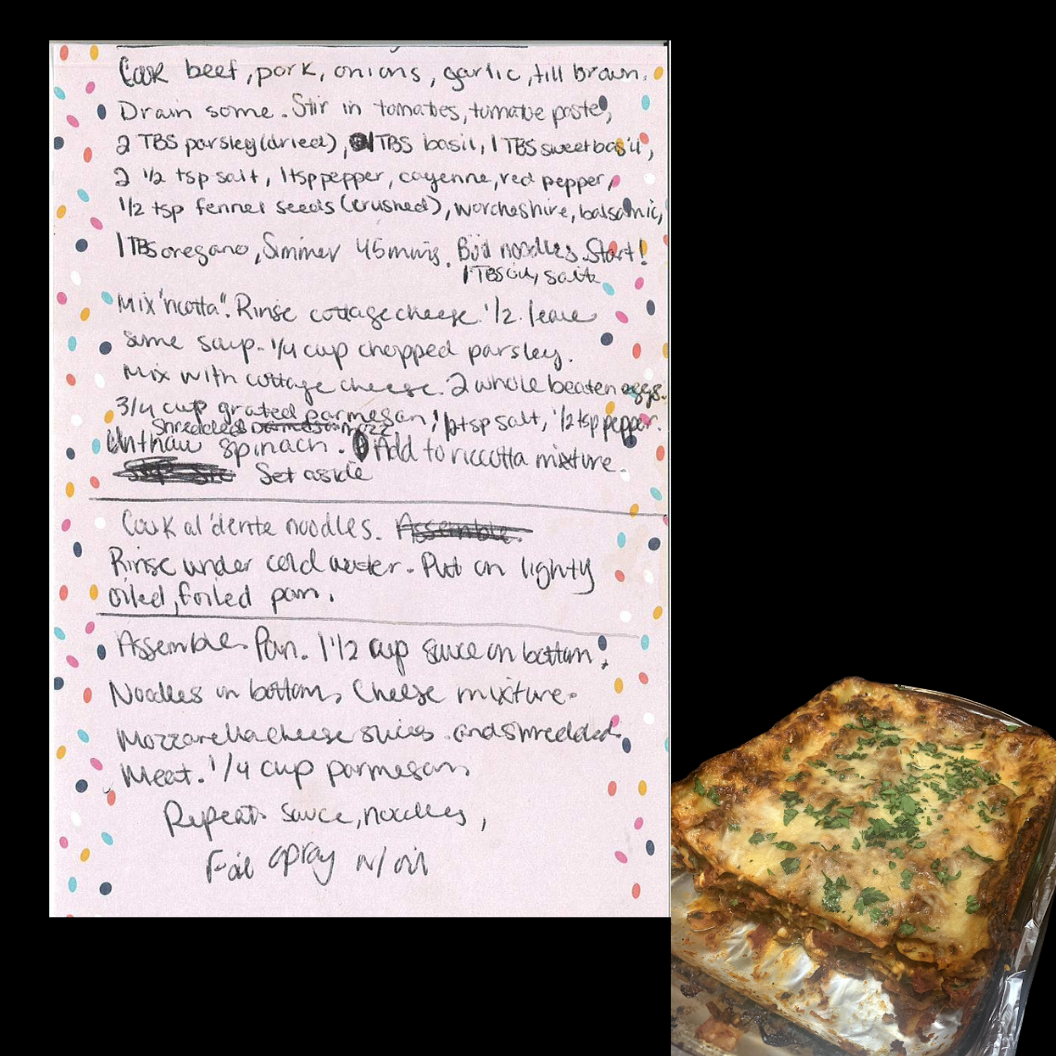 Cook beef, pork, onions, garlic, till brown.
Drain some. Stir in tomatoes, tomatoe paste,
2 TBS parsley (dried), 1 TBS basil, 1 TBS sweet basil,
2 1/2 tsp salt, 1 tsp pepper, cayenne, red pepper,
1/2 tsp fennel seeds (crushed), worcheshire, balsamic,
1 TBS oregano, Simmer 45 mins. Boil noodles. Start!
1 TBS oil, salt
Mix "ricotta". Rinse cottage cheese. 1/2. leave
some soup. 1/4 cup chopped parsley.
Mix with cottage cheese. 2 whole beaten eggs.
3/4 cup grated parmesan, 1/2 tsp salt, 1/2 tsp pepper.
Shredded mozz
Unthaw spinach. Add to riccotta mixture.
Set aside
Cook al'dente noodles. Assemble.
Rinse under cold water. Put on lighty
oiled, foiled pan.
Assemble. Pan. 1 1/2 cup sauce on bottom.
Noodles on bottom, Cheese mixture.
Mozzarella cheese slices. and shredded.
Meat. 1/4 cup parmesan
Repeat. Sauce, noodles,
Foil spray w/ oil